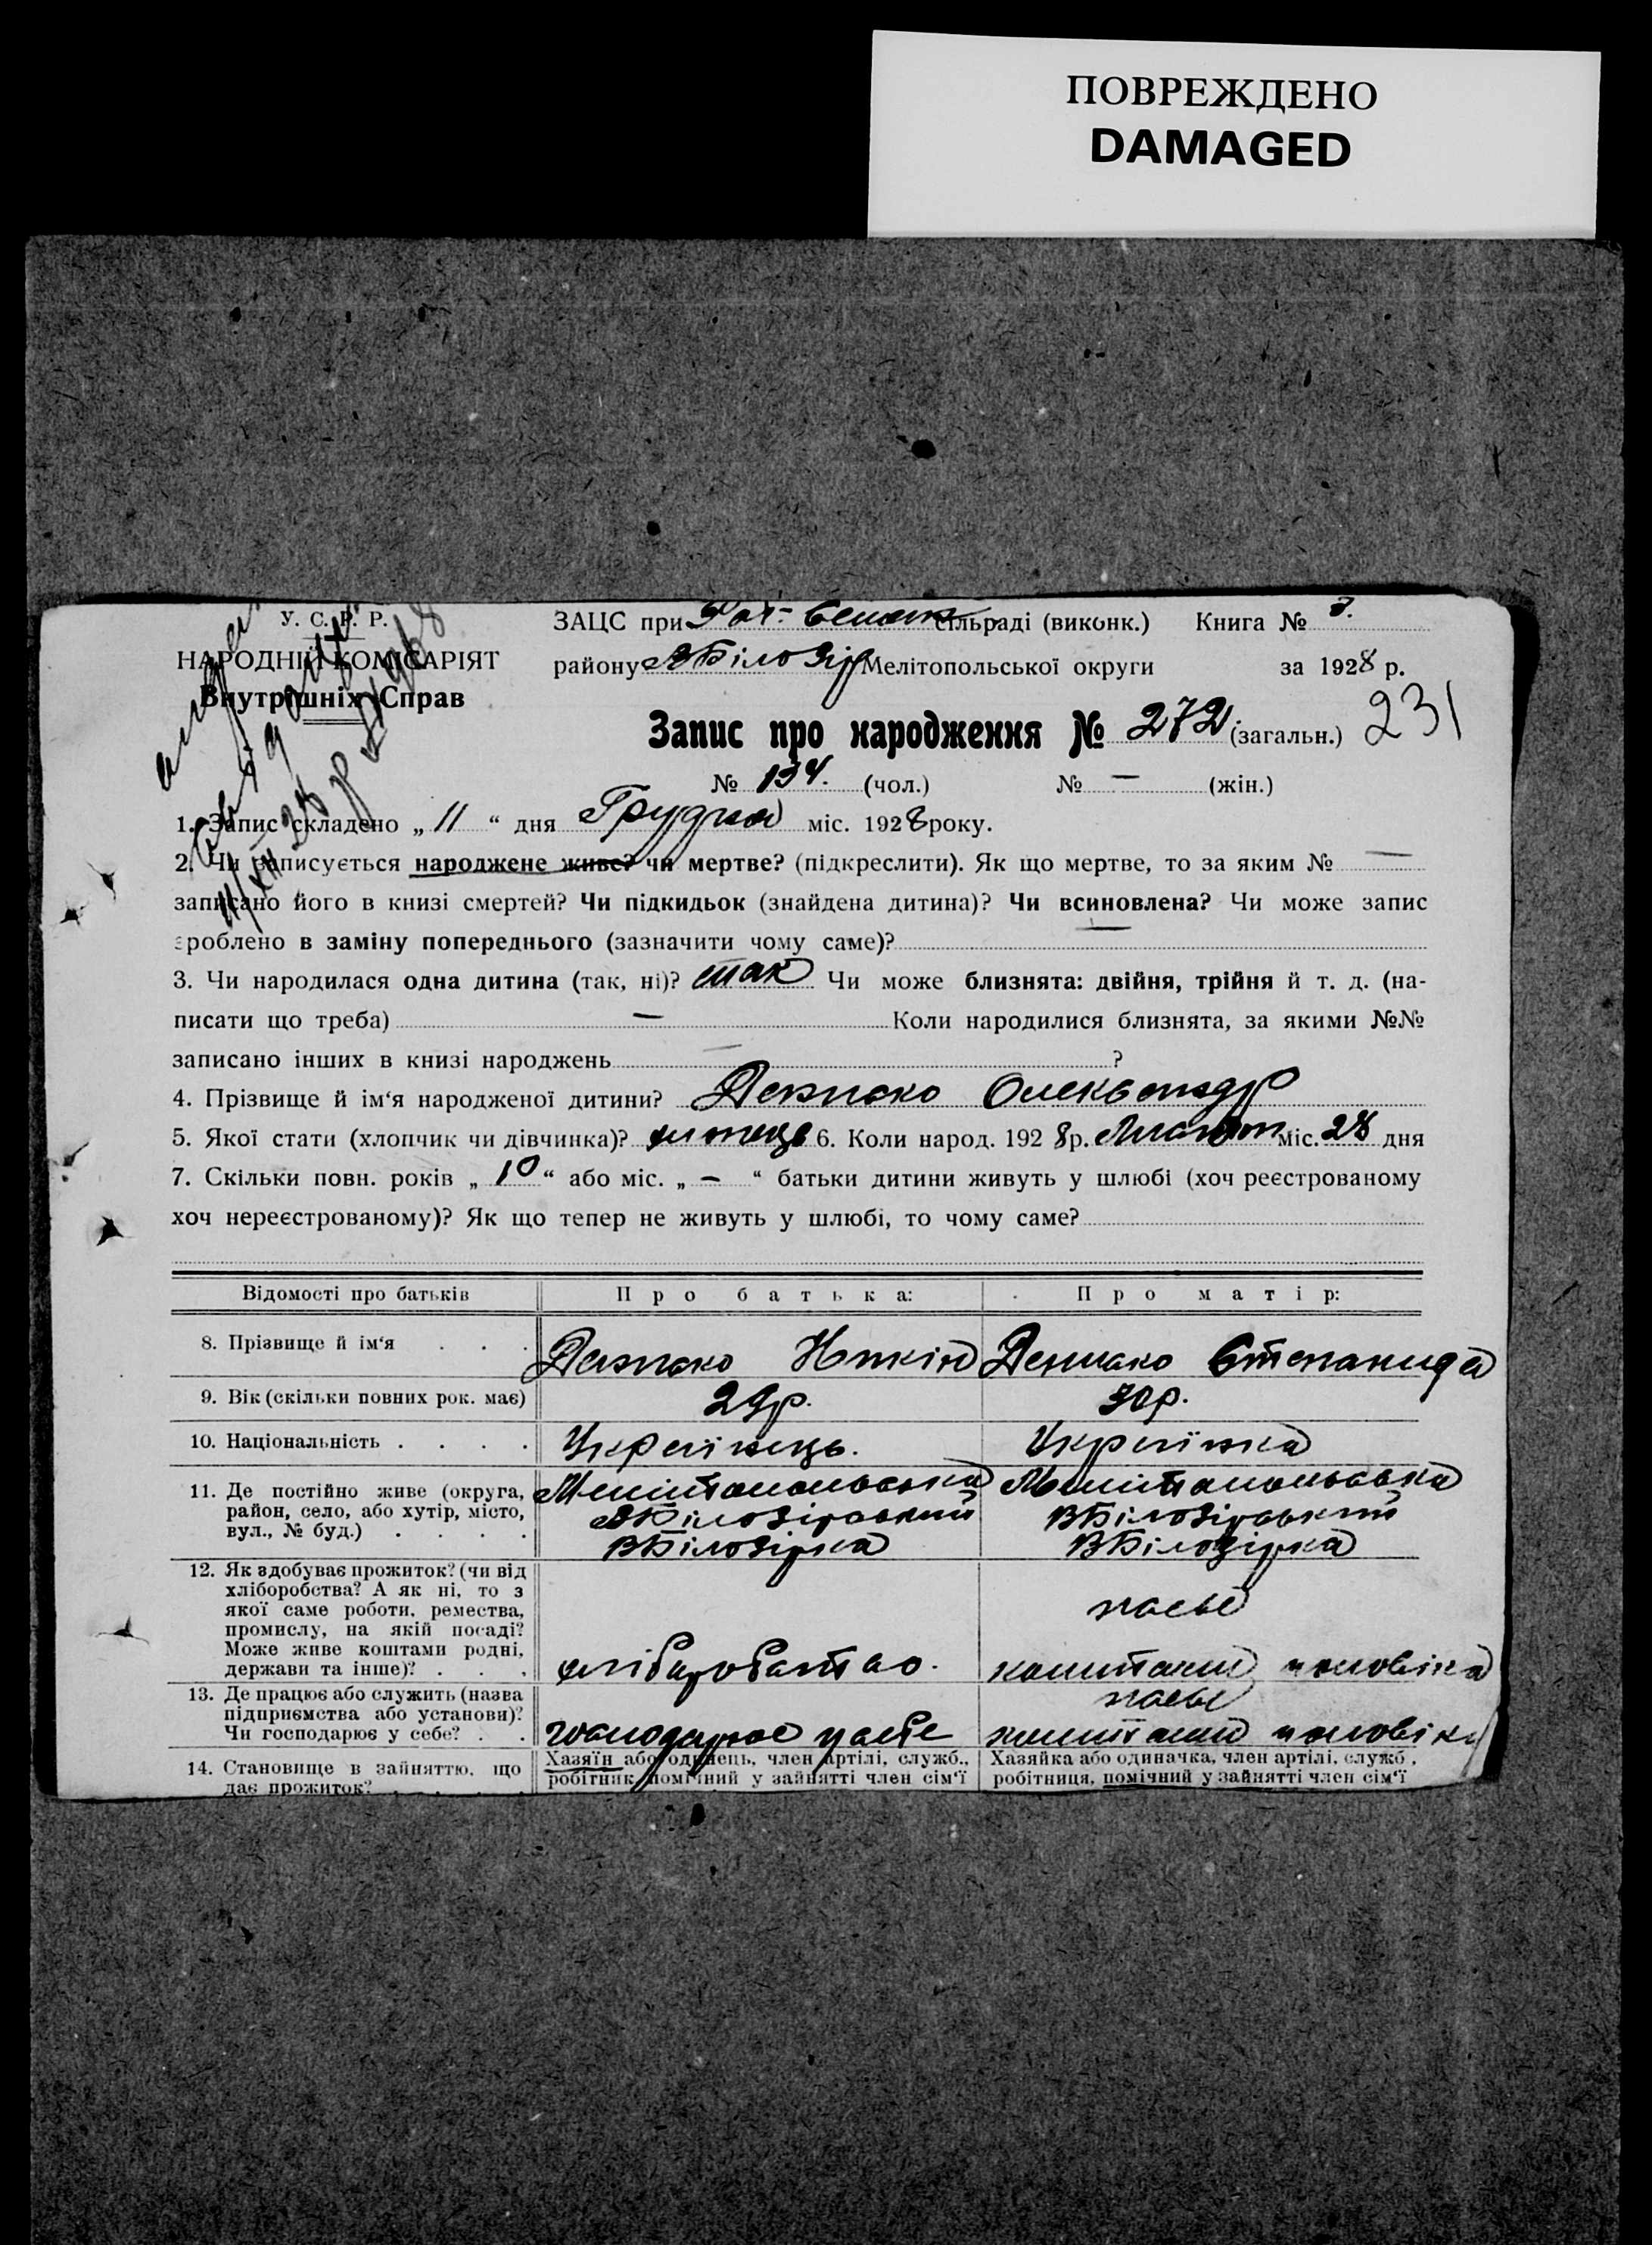 ПОВРЕЖДЕНО
DAMAGED
У. С. Р. Р.
НАРОДНІЙ КОМІСАРІЯТ
Внутрішніх Справ
ЗАЦС при сільраді (виконк.) Книга №
району ВБілозір Мелітопольської округи за 1928 р.
Запис про народження № 272 (загальн.) 231
№ 134. (чол.) № — (жін.)
1. Запис складено „ 11 “ дня Грудня міс. 1928 року.
2. Чи записується народжене живе? чи мертве? (підкреслити). Як що мертве, то за яким № —
записано його в книзі смертей? Чи підкидьок (знайдена дитина)? Чи всиновлена? Чи може запис
зроблено в заміну попереднього (зазначити чому саме)? —
3. Чи народилася одна дитина (так, ні)? так Чи може близнята: двійня, трійня й т. д. (на-
писати що треба) — Коли народилися близнята, за якими №№
записано інших в книзі народжень — ?
4. Прізвище й ім‘я народженої дитини? Олександр
5. Якої стати (хлопчик чи дівчинка)? хлопець 6. Коли народ. 1928 р. Листоп міс. 28 дня
7. Скільки повн. років „ 10 “ або міс. „ — “ батьки дитини живуть у шлюбі (хоч реєстрованому
хоч нереєстрованому)? Як що тепер не живуть у шлюбі, то чому саме?
Відомості про батьків Про батька: Про матір:
8. Прізвище й ім‘я . . . Степанида
9. Вік (скільки повних рок. має) 29р. 30р.
10. Національність . . . . Українець. Українка
11. Де постійно живе (округа, район, село, або хутір, місто, вул., № буд.) . . . .
Мелітопольська Мелітопольська
ВБілозірський ВБілозірський
ВБілозірка ВБілозірка
12. Як здобуває прожиток? (чи від
хліборобства? А як ні, то з
якої саме роботи, ремества,
промислу, на якій посаді?
Може живе коштами родні,
держави та інше)? . . . хліборобство. коштами чоловіка
13. Де працює або служить (назва
підприємства або установи)?
Чи господарює у себе? . . господарює у себе коштами чоловіка
14. Становище в зайняттю, що
дає прожиток? . . . .
Хазяїн або одинець, член артілі, служб.,
робітник, помічний у зайнятті член сім‘ї
Хазяйка або одиначка, член артілі, служб.,
робітниця, помічний у зайнятті член сім‘ї